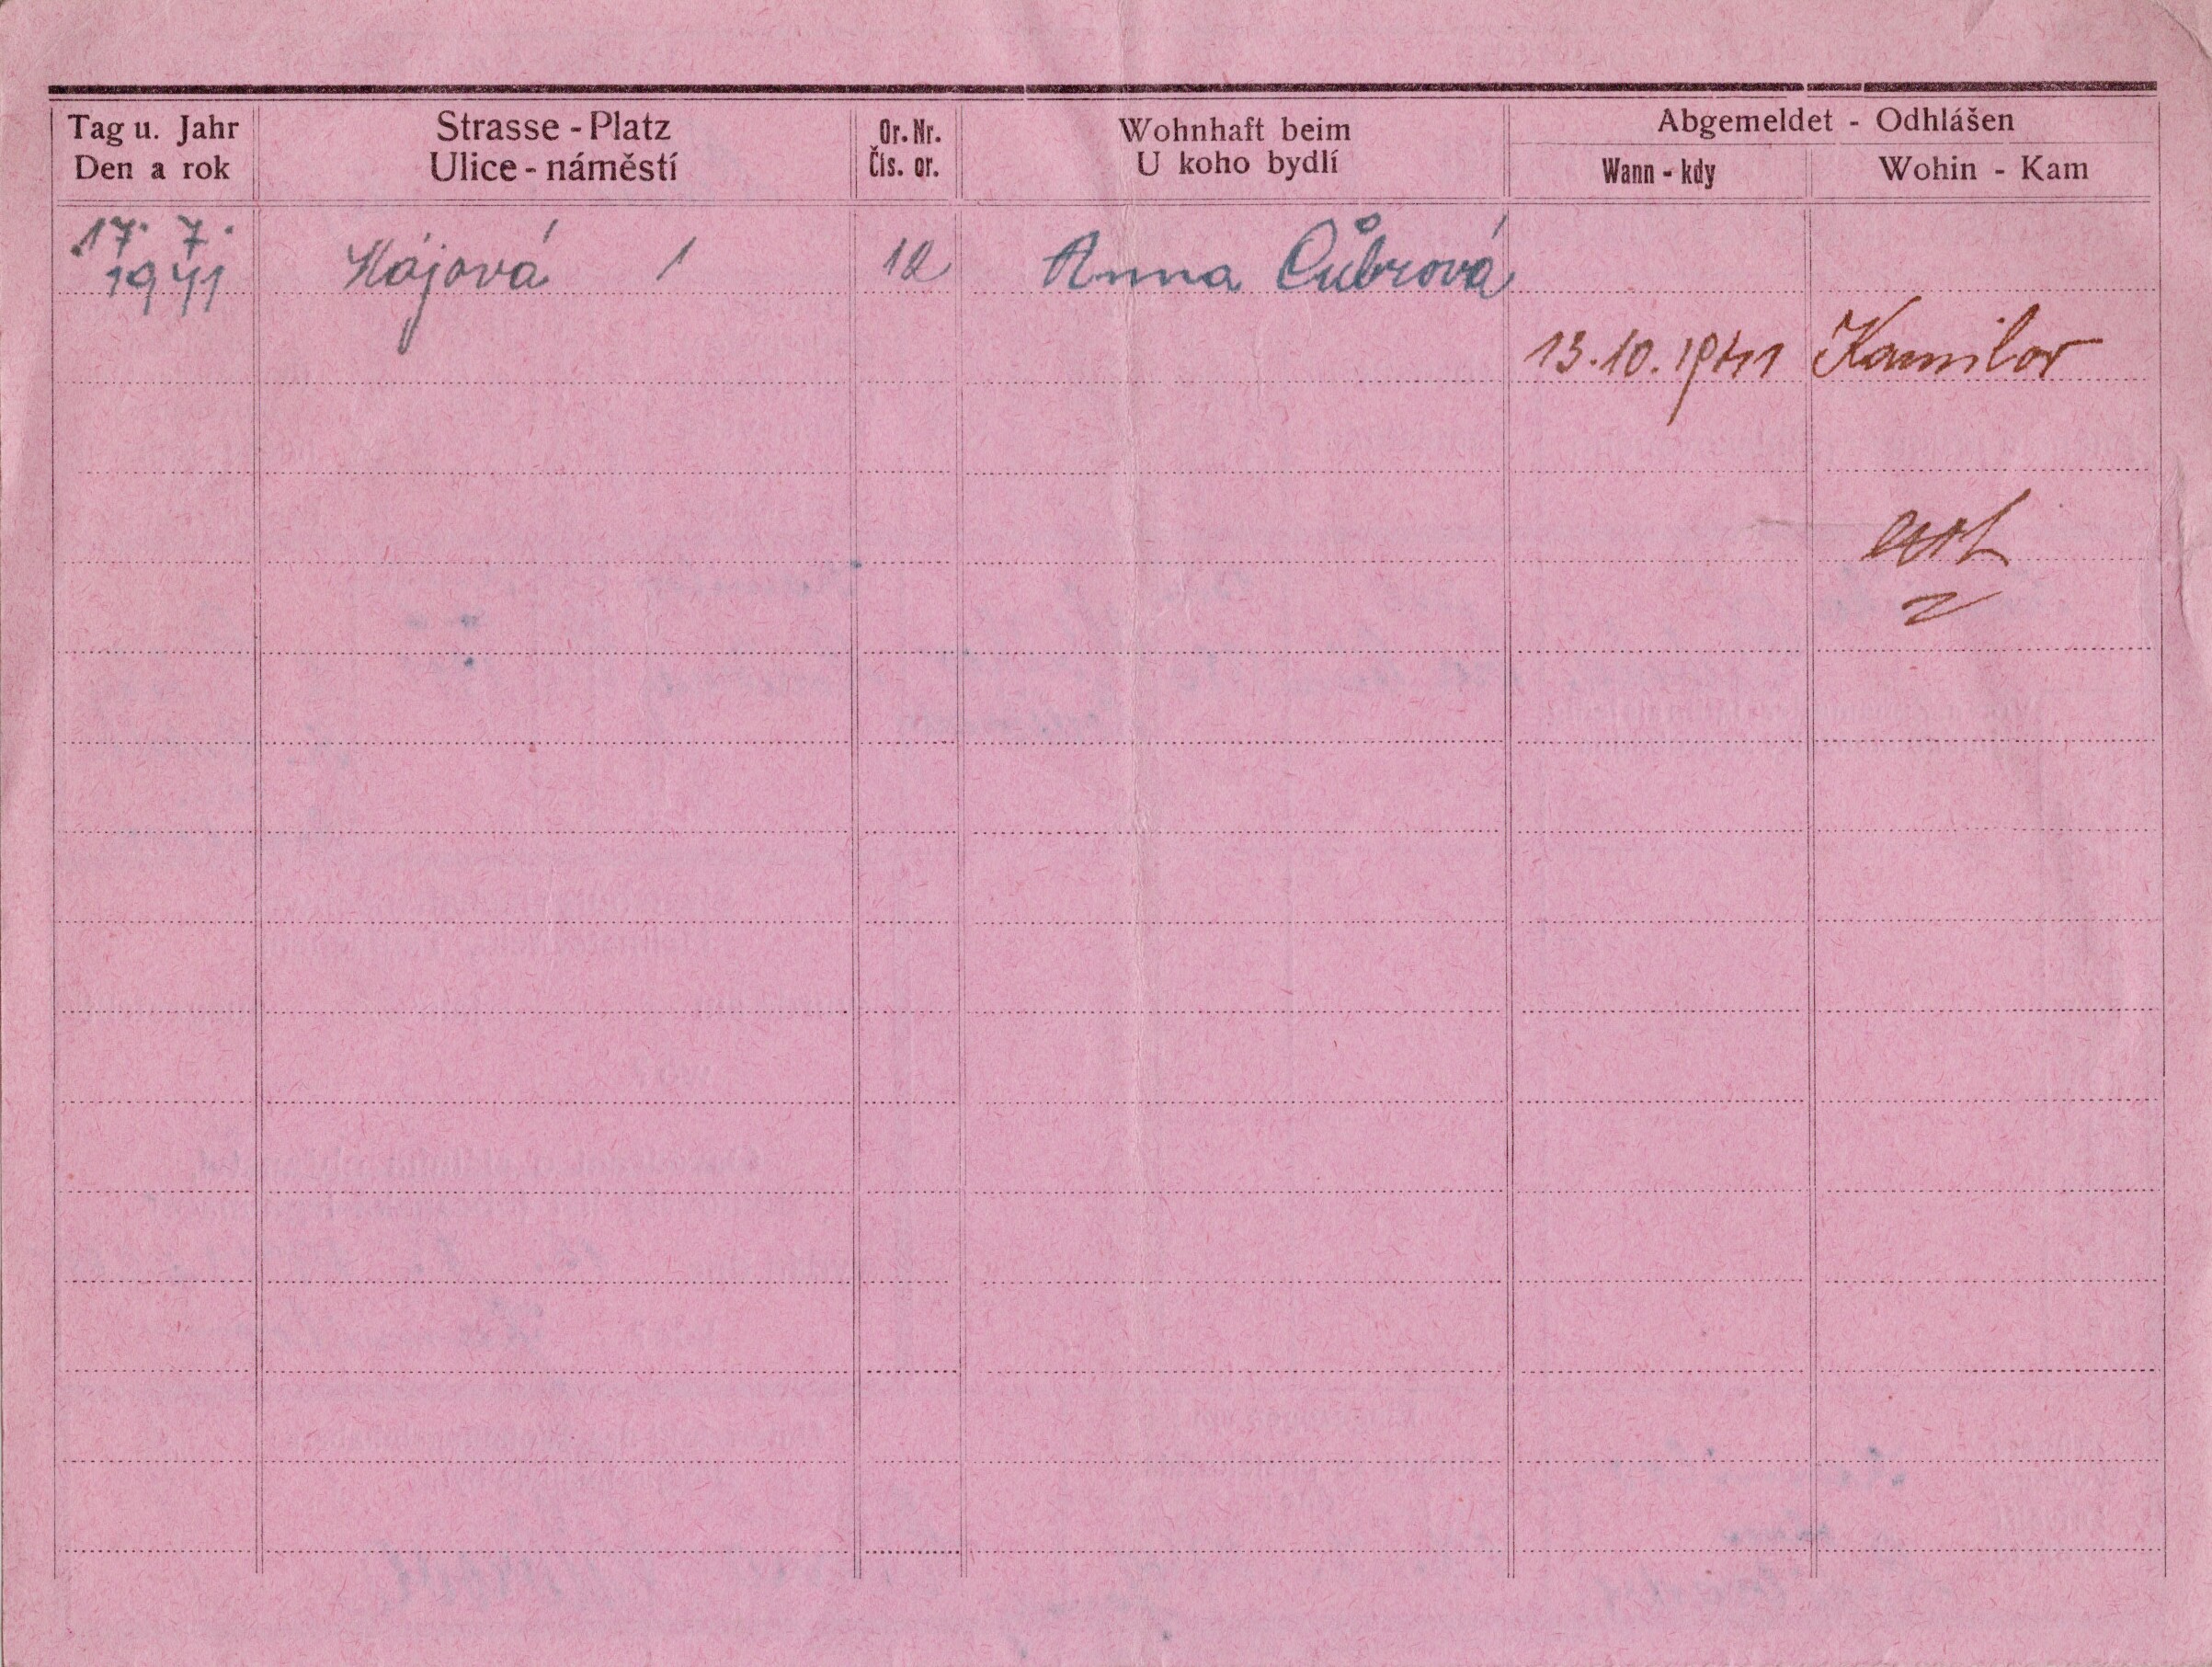 Tag u. Jahr
Den a rok
Strasse - Platz
Ulice - náměstí
Or. Nr.
Čis. or.
Wohnhaft beim
U koho bydlí
Abgemeldet - Odhlášen
Wann - kdy
Wohin - Kam
17. 7.
1941
Hájová 1
12
Anna Cůbrová
13.10.1941